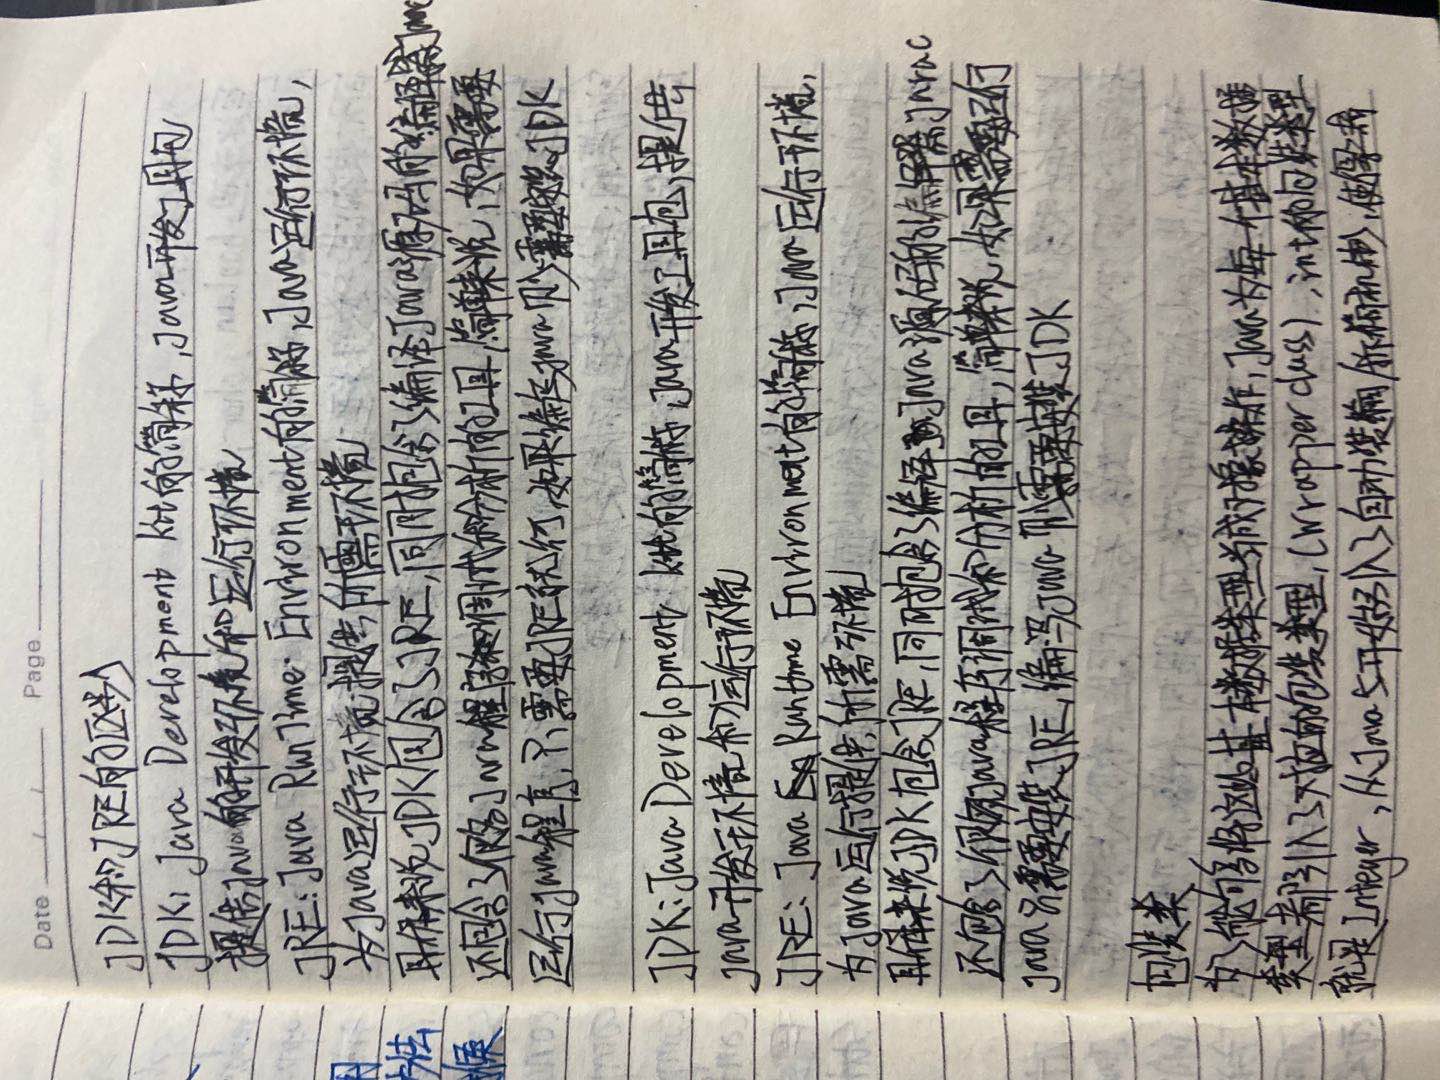 Date / / Page
JDK和JRE的区别
JDK: Java Development kit的简称,Java开发工具包
提供Java的开发环境和运行环境
JRE: Java RunTime Environment的简称,Java运行环境,
为Java运行环境提供所需环境
具体来说JDK包含了JRE,同时包含了编译Java源码的编译器Javac
还包含了很多Java程序调试和分析的工具,简单来说,如果需要
运行Java程序,只需要JRE就行,如果编写Java则需要安装JDK
JDK: Java Development kit的简称,Java开发工具包,提供
Java开发环境和运行环境
JRE: Java Runtime Environment的简称,Java运行环境,
为Java运行提供所需环境
具体来说JDK包含JRE,同时包含了编译Java源码的编译器Javac
还包含了很多Java程序调试和分析的工具,简单来说,如果需要运行
Java只需要安装JRE,编写Java则需要安装JDK
包装类
为了能够将这些基本数据类型当成对象操作,Java为每一个基本数据
类型都引入了对应的包装类型,(wrapper class),int的包装类型
就是Integer,从Java 5开始引入了自动装箱/拆箱机制,使得二者
用
方法
换